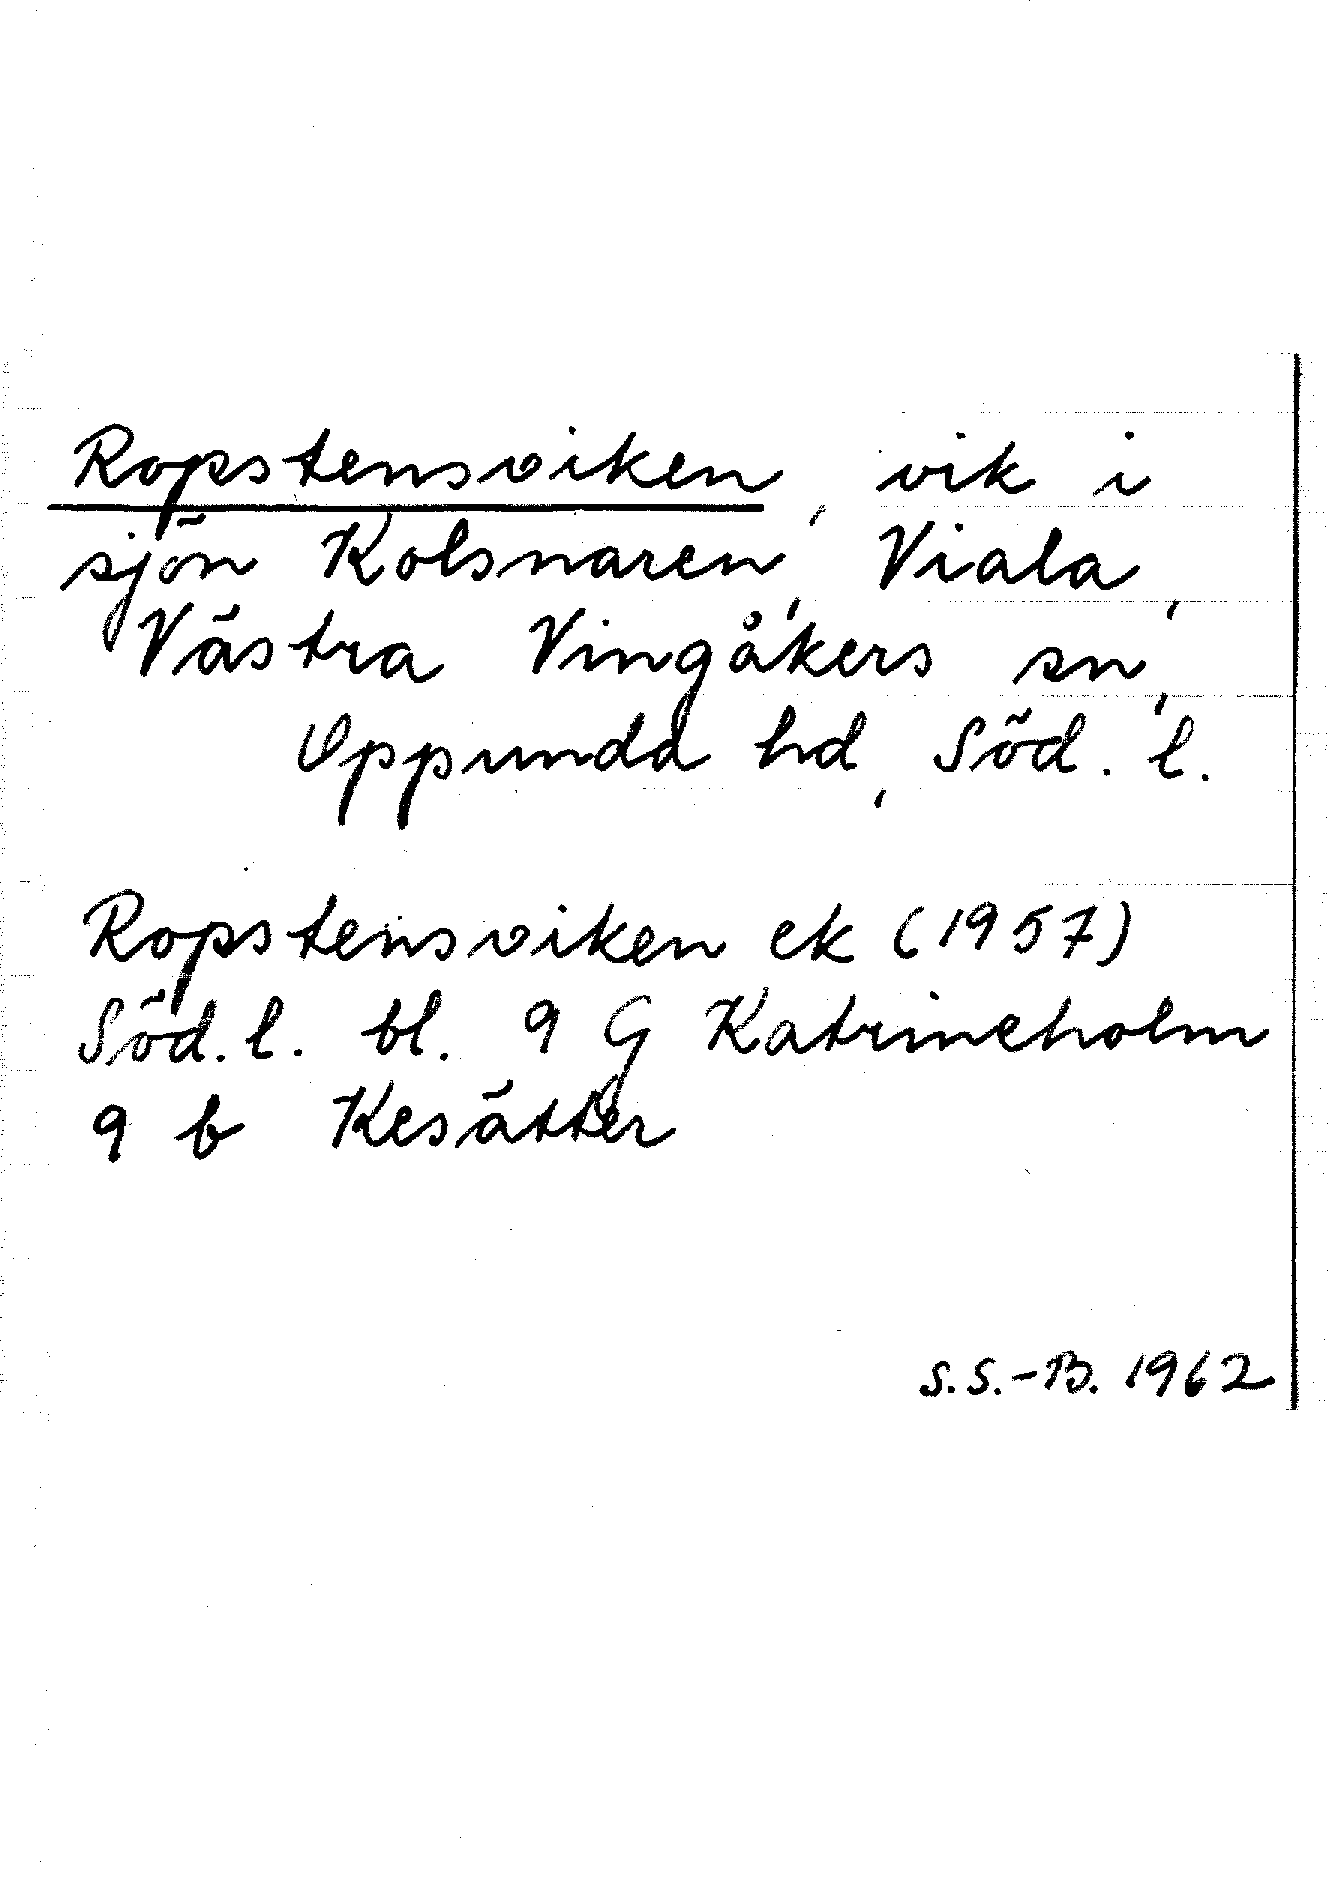 Ropstensviken, vik i
sjön Kolsnaren, Viala,
Västra Vingåkers sn,
Oppunda hd, Söd. l.
Ropstensviken ek (1957)
Söd. l. bl. 9 G Katrineholm
9 b Kesätter
S.S.-B. 1962